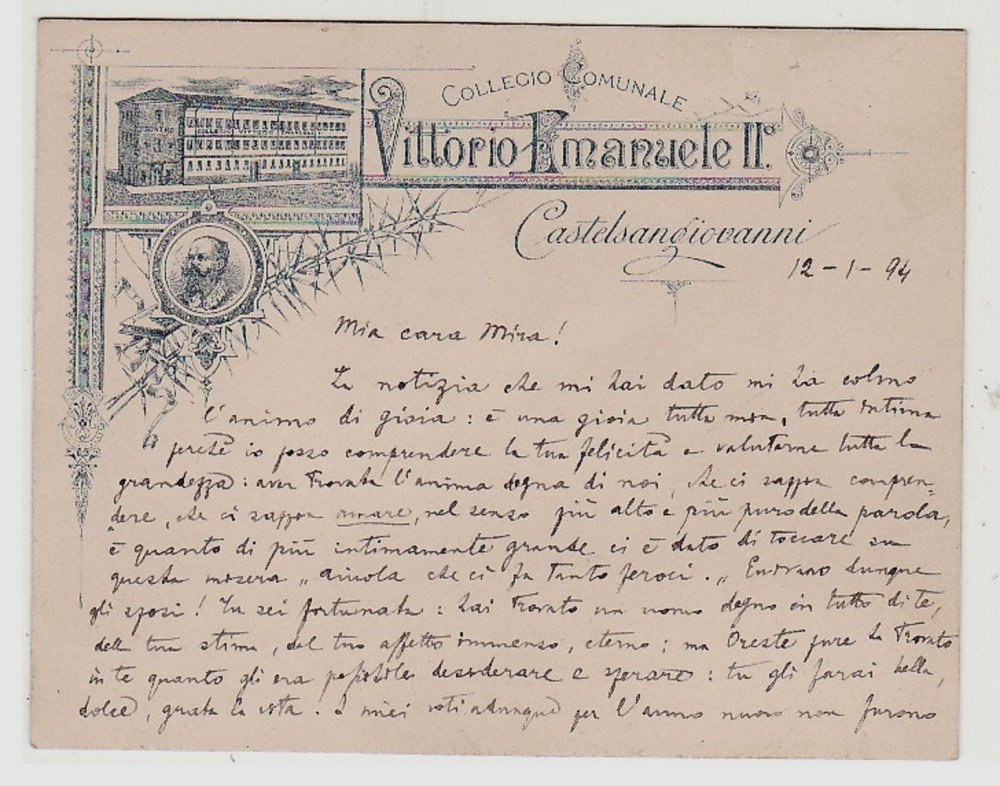 COLLEGIO COMUNALE
Vittorio Emanuele II°.
Castelsangiovanni
12-1-94
Mia cara Mira!
La notizia che mi hai dato mi ha colmo
l'animo di gioia: è una gioia tutta mia, tutta intima
perchè io posso comprendere la tua felicità e valutarne tutta la
grandezza: aver trovata l'anima degna di noi, che ci sappia compren-
dere, che ci sappia amare, nel senso più alto e più puro della parola,
è quanto di più intimamente grande ci è dato di toccare su
questa misera „aiuola che ci fa tanto feroci." Evvivano dunque
gli sposi! Tu sei fortunata: hai trovato un uomo degno in tutto di te,
della tua stima, del tuo affetto immenso, eterno; ma Oreste pure ha trovato
in te quanto gli era possibile desiderare e sperare: tu gli farai bella,
dolce, grata la vita. I miei voti adunque per l'anno nuovo non furono